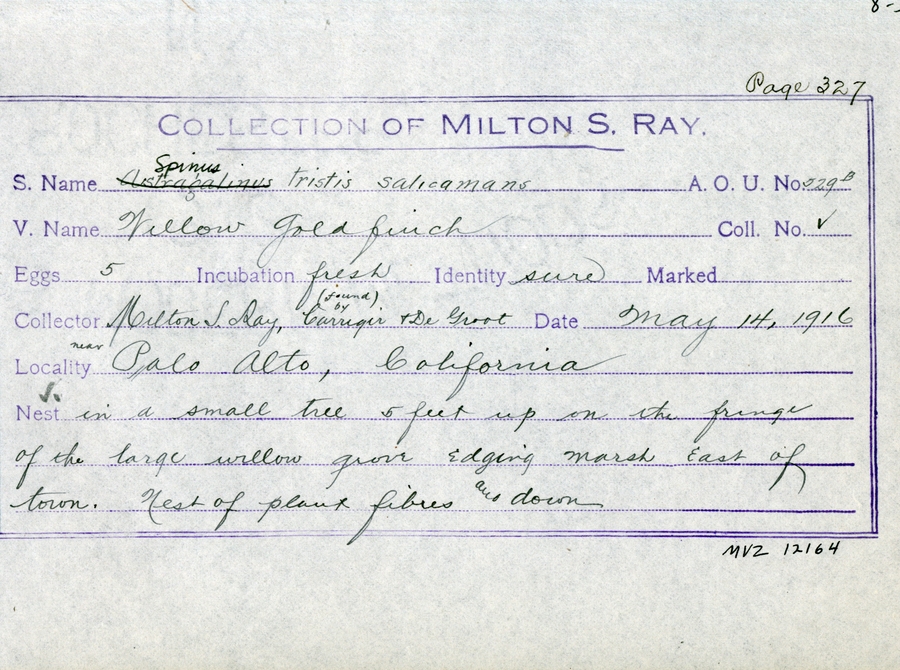 8-
Page 327
COLLECTION OF MILTON S. RAY.
Spinus
S. Name Astragalinus tristis salicamans A. O. U. No. 529B
V. Name Willow Goldfinch Coll. No. ✓
Eggs 5 Incubation fresh Identity sure Marked
(found)
by
Collector Milton S. Ray, Carriger & De Groot Date May 14, 1916
near
Locality Palo Alto, California
Nest in a small tree 5 feet up on the fringe
of the large willow grove Edging marsh East of
town. Nest of plant fibres and down
MVZ 12164